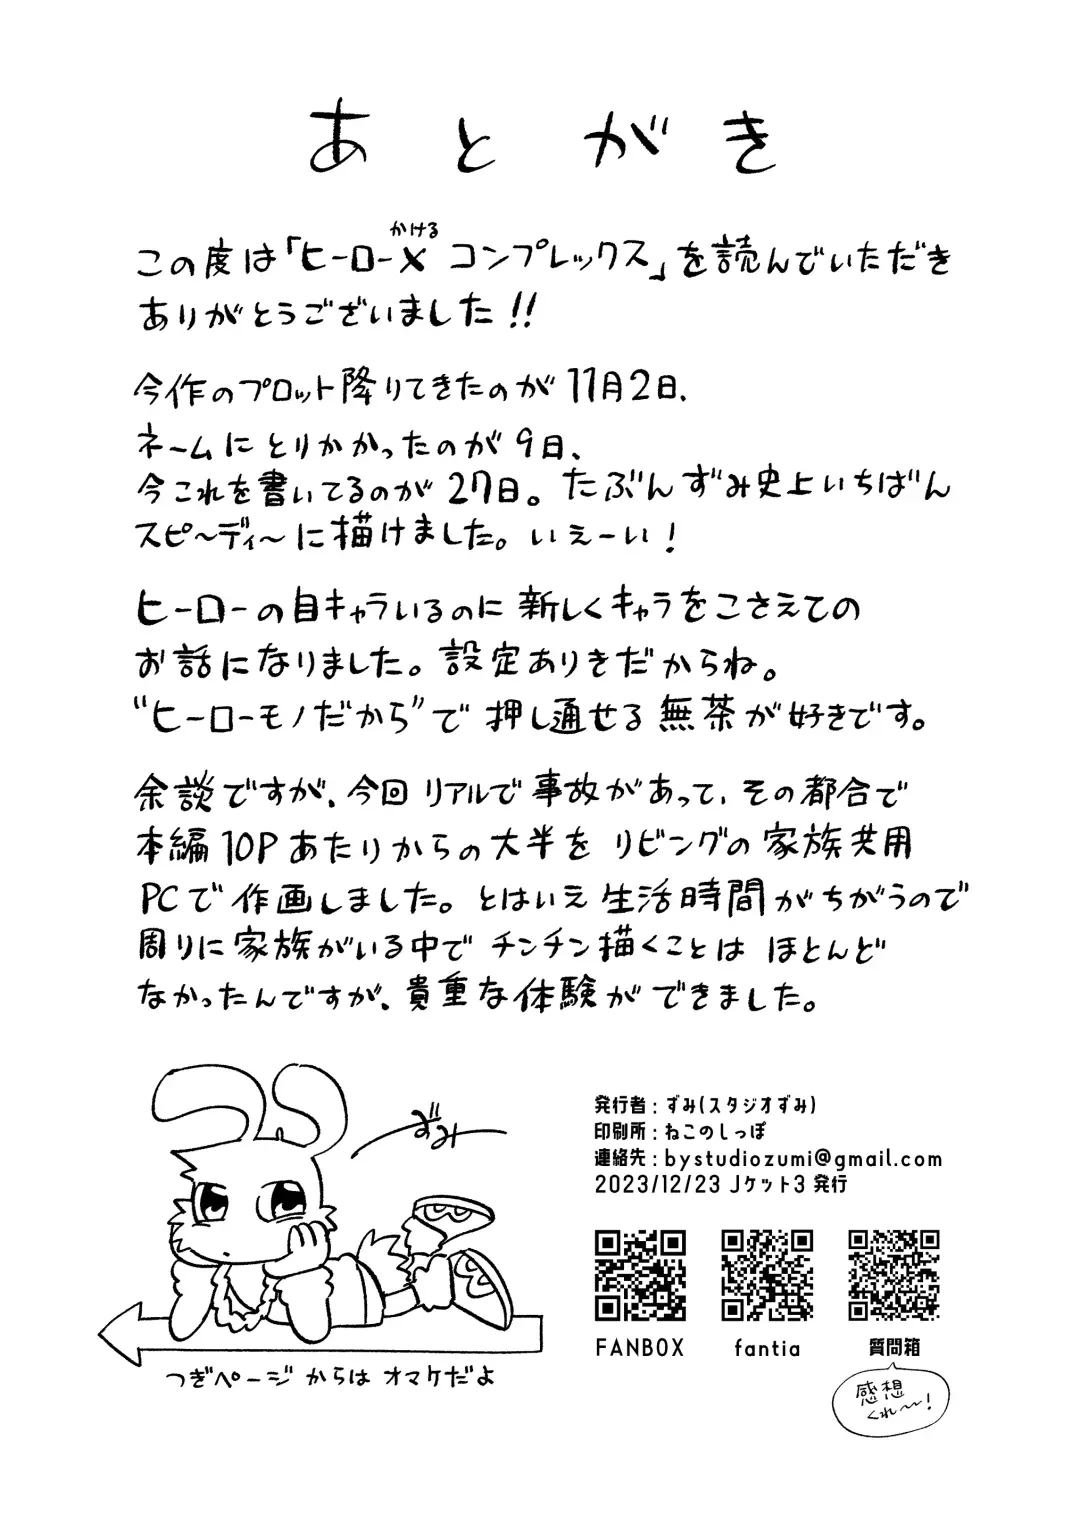 あとがき
かける
この度は「ヒーロー×コンプレックス」を読んでいただき
ありがとうございました!!
今作のプロット降りてきたのが11月2日、
ネームにとりかかったのが9日、
今これを書いてるのが27日。たぶんずみ史上いちばん
スピ〜ディ〜に描けました。いぇーい!
ヒーローの自キャラいるのに新しくキャラをこさえての
お話になりました。設定ありきだからね。
"ヒーローモノだから"で押し通せる無茶が好きです。
余談ですが、今回リアルで事故があって、その都合で
本編10Pあたりからの大半をリビングの家族共用
PCで作画しました。とはいえ生活時間がちがうので
周りに家族がいる中でチンチン描くことはほとんど
なかったんですが、貴重な体験ができました。
ずみ
つぎページからはオマケだよ
発行者:ずみ(スタジオずみ)
印刷所:ねこのしっぽ
連絡先:bystudiozumi@gmail.com
2023/12/23 Jケット3 発行
FANBOX
fantia
質問箱
感想
くれ〜!